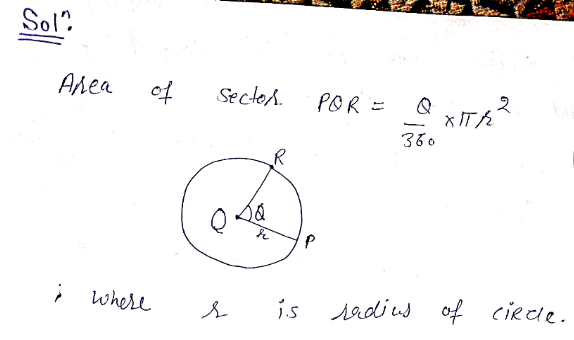 Solⁿ:
Area of sector PQR = Q/360 × πr²
R
Q
Q
r
P
; where r is radius of circle.